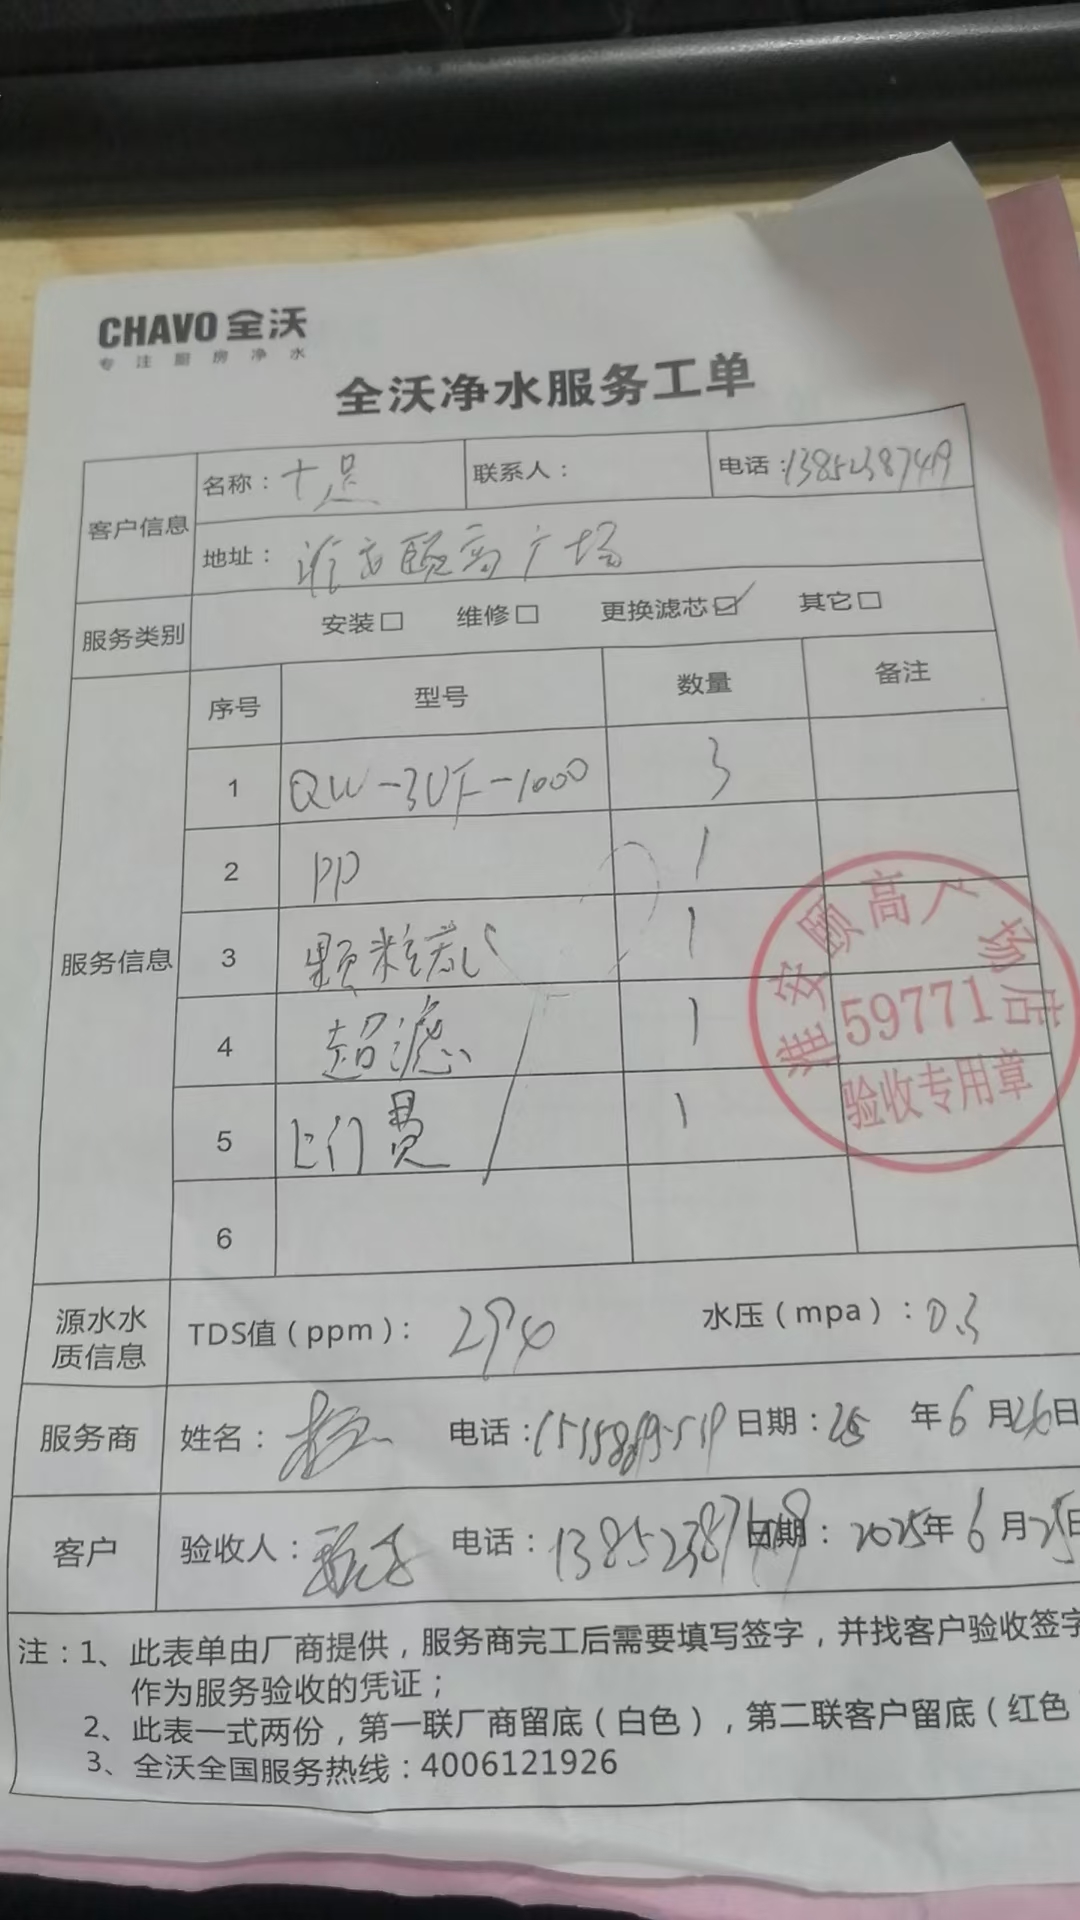 CHAVO 全沃
专注厨房净水
全沃净水服务工单
客户信息
名称：十足
联系人：
电话：13852387449
地址：淮安颐高广场
服务类别
安装□ 维修□ 更换滤芯☑ 其它□
服务信息
序号 型号 数量 备注
1 QW-3UF-1000 3
2 PP 1
3 颗粒炭 1
4 超滤 1
5 上门费 1
6
淮安颐高广场店
59771
验收专用章
源水水质信息
TDS值（ppm）：294 水压（mpa）：0.3
服务商
姓名：
电话：
日期：25年6月26日
客户
验收人：
电话：138523874 日期：2025年6月25日
注：1、此表单由厂商提供，服务商完工后需要填写签字，并找客户验收签字
作为服务验收的凭证；
2、此表一式两份，第一联厂商留底（白色），第二联客户留底（红色
3、全沃全国服务热线：4006121926